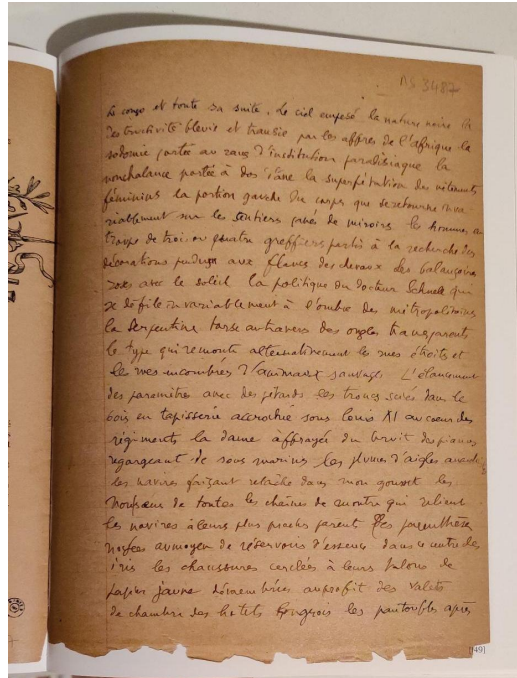 AS 3487
Le congo et toute sa suite. Le ciel empesé la nature noire la
destructivité bleuie et transie par les affres de l'afrique la
sodomie portée au rang d'institution paradisiaque la
nonchalance portée à dos d'âne la superfétation des vêtements
féminins la portion gauche du corps que se retourne inva
riablement sur les sentiers pavés de miroirs les hommes en
troupe de trois ou quatre greffiers partis à la recherche des
décorations aux des chevaux des balançoires
avec le soleil la politique du docteur Schnell qui
se défile invariablement à l'ombre des métropolitains
la serpentine tasse autravers des ongles transparents
le type qui remonte alternativement les rues étroites et
les rues encombrées d'animaux sauvages L'élancement
des paramètres avec des pétards les troncs sciés dans le
bois en tapisserie accrochée sous Louis XI au cœur des
régiments la dame effrayée du bruit des pianos
regorgeant de sous marins les plumes d'aigles
les navires faisant relâche dans mon gousset les
de toutes les chaînes de montre qui relient
les navires à leurs plus proches parent les parenthèses
noyées au moyen de réservoirs d'essence dans le centre des
iris les chaussures cerclées à leurs talons de
papier jaune démembrées au profit des valets
de chambre des hotels bourgeois les pantoufles après
[49]